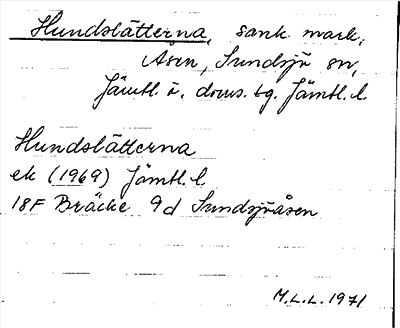 Hundslätterna, sank mark,
Åsen, Sundsjö sn,
Jämtl. ö. doms. tg. Jämtl. l.
Hundslätterna
ek (1969) Jämtl. l.
18F Bräcke 9d Sundsjöåsen
M.L.L. 1971